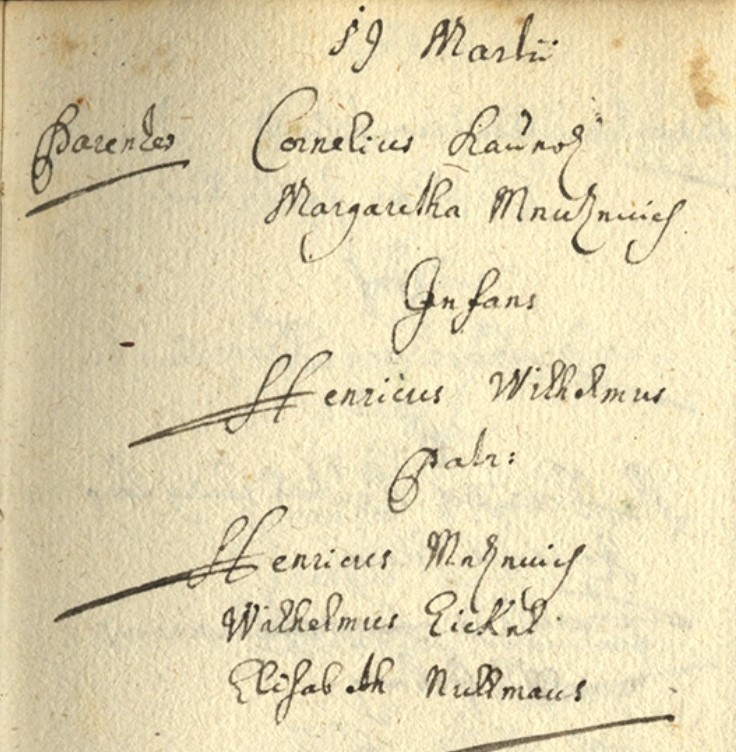 19 Martii
Parentes Cornelius
Margaretha
Infans
Henricus Wilhelmus
Patr:
Henricus
Wilhelmus Eickel
Elisabeth Nullmans